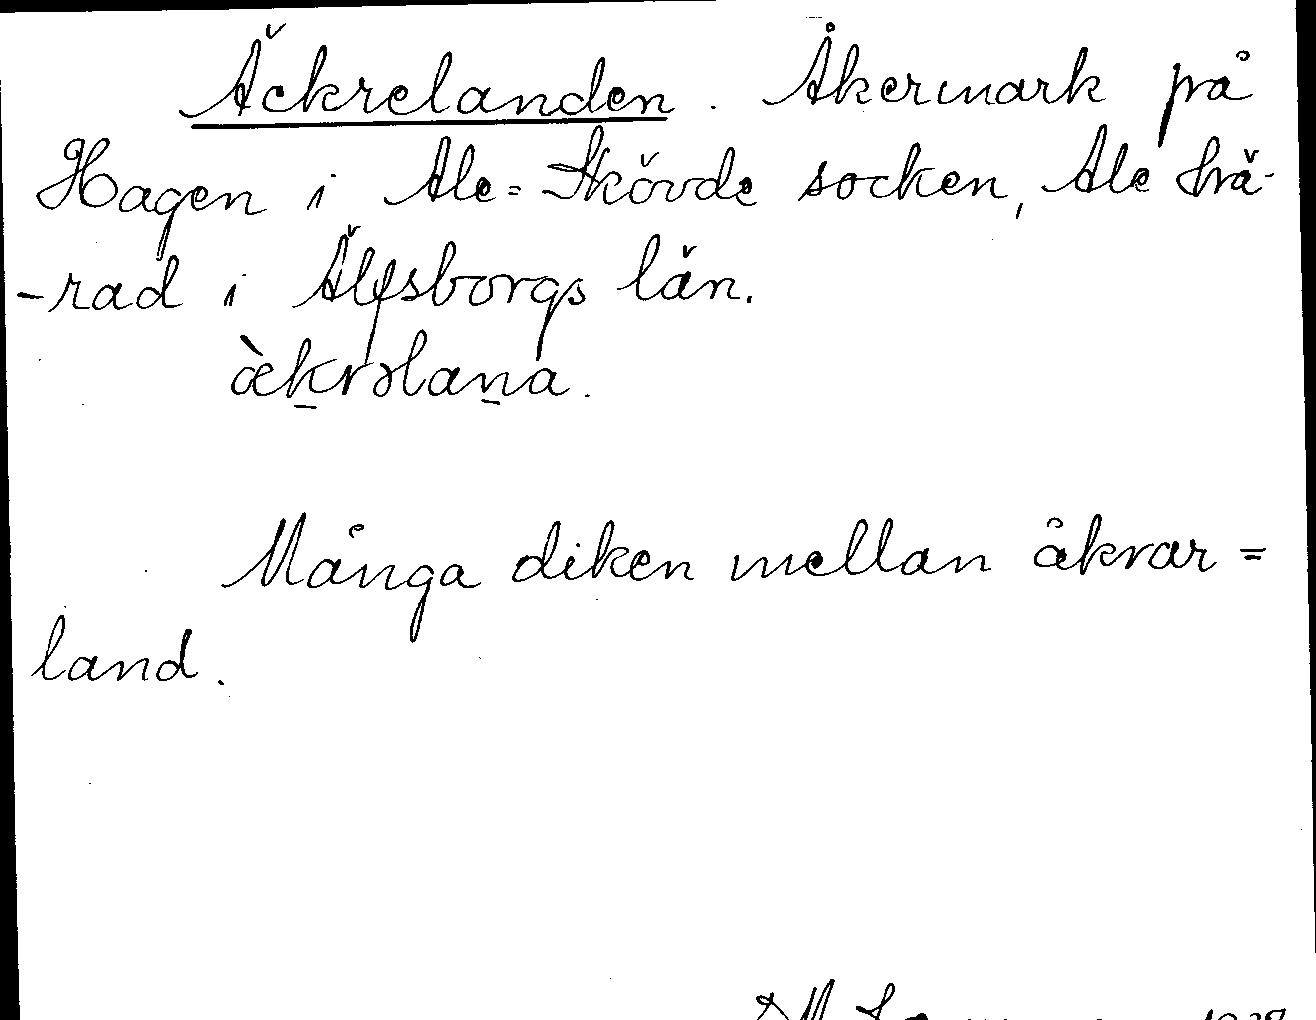 Äckrelanden. Åkermark på
Hagen i Ale=Skövde socken, Ale hä-
-rad i Älfsborgs län.
æ̀k̠rəlan̠a.
Många diken mellan åkrar=
land.